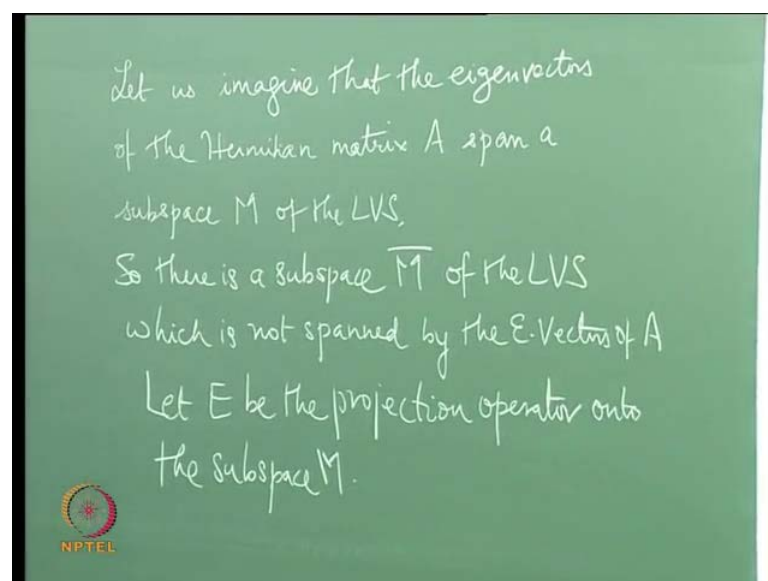 Let us imagine that the eigenvectors
of the Hermitian matrix A span a
subspace M of the LVS,
So there is a subspace M̅ of the LVS
which is not spanned by the E.Vectors of A
Let E be the projection operator onto
the subspace M.
NPTEL